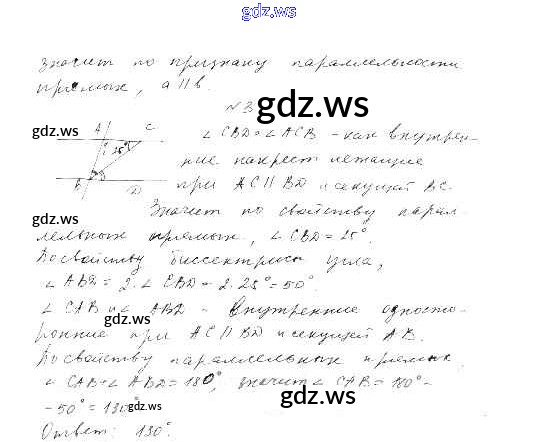 gdz.ws
значит по признаку параллельности
прямых, a || b.
№3
gdz.ws
A C
25°
B D
∠CBD = ∠ACB - как внутрен-
gdz.ws
ние накрест лежащие
при AC || BD и секущей BC.
Значит по свойству парал-
gdz.ws
лельных прямых, ∠CBD = 25°.
По свойству биссектрисы угла,
∠ABD = 2·∠CBD = 2·25° = 50°.
∠CAB и ∠ABD - внутренние односто-
gdz.ws
ронние при AC || BD и секущей AB.
По свойству параллельных прямых
∠CAB + ∠ABD = 180°, значит ∠CAB = 180° -
- 50° = 130°
gdz.ws
gdz.ws
Ответ: 130°.